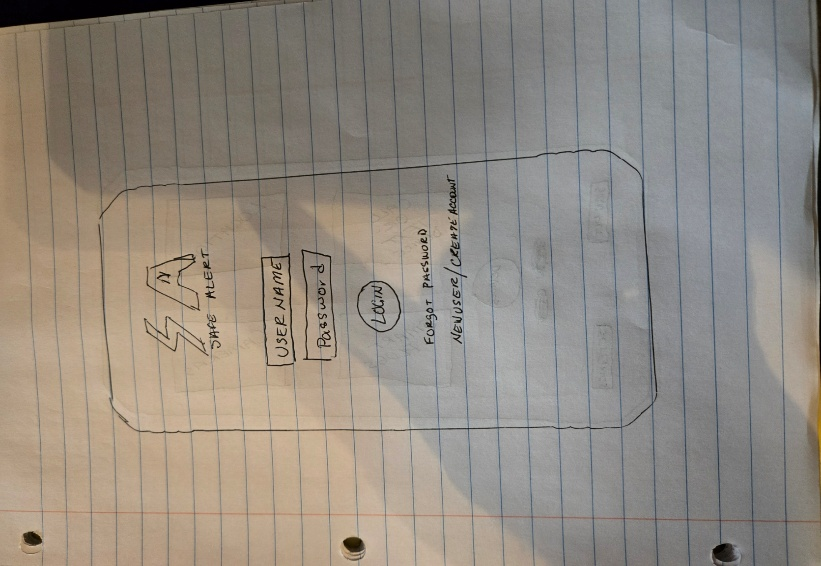 SA
SAFE ALERT
USER NAME
Password
LOGIN
FORGOT PASSWORD
NEW USER/CREATE ACCOUNT